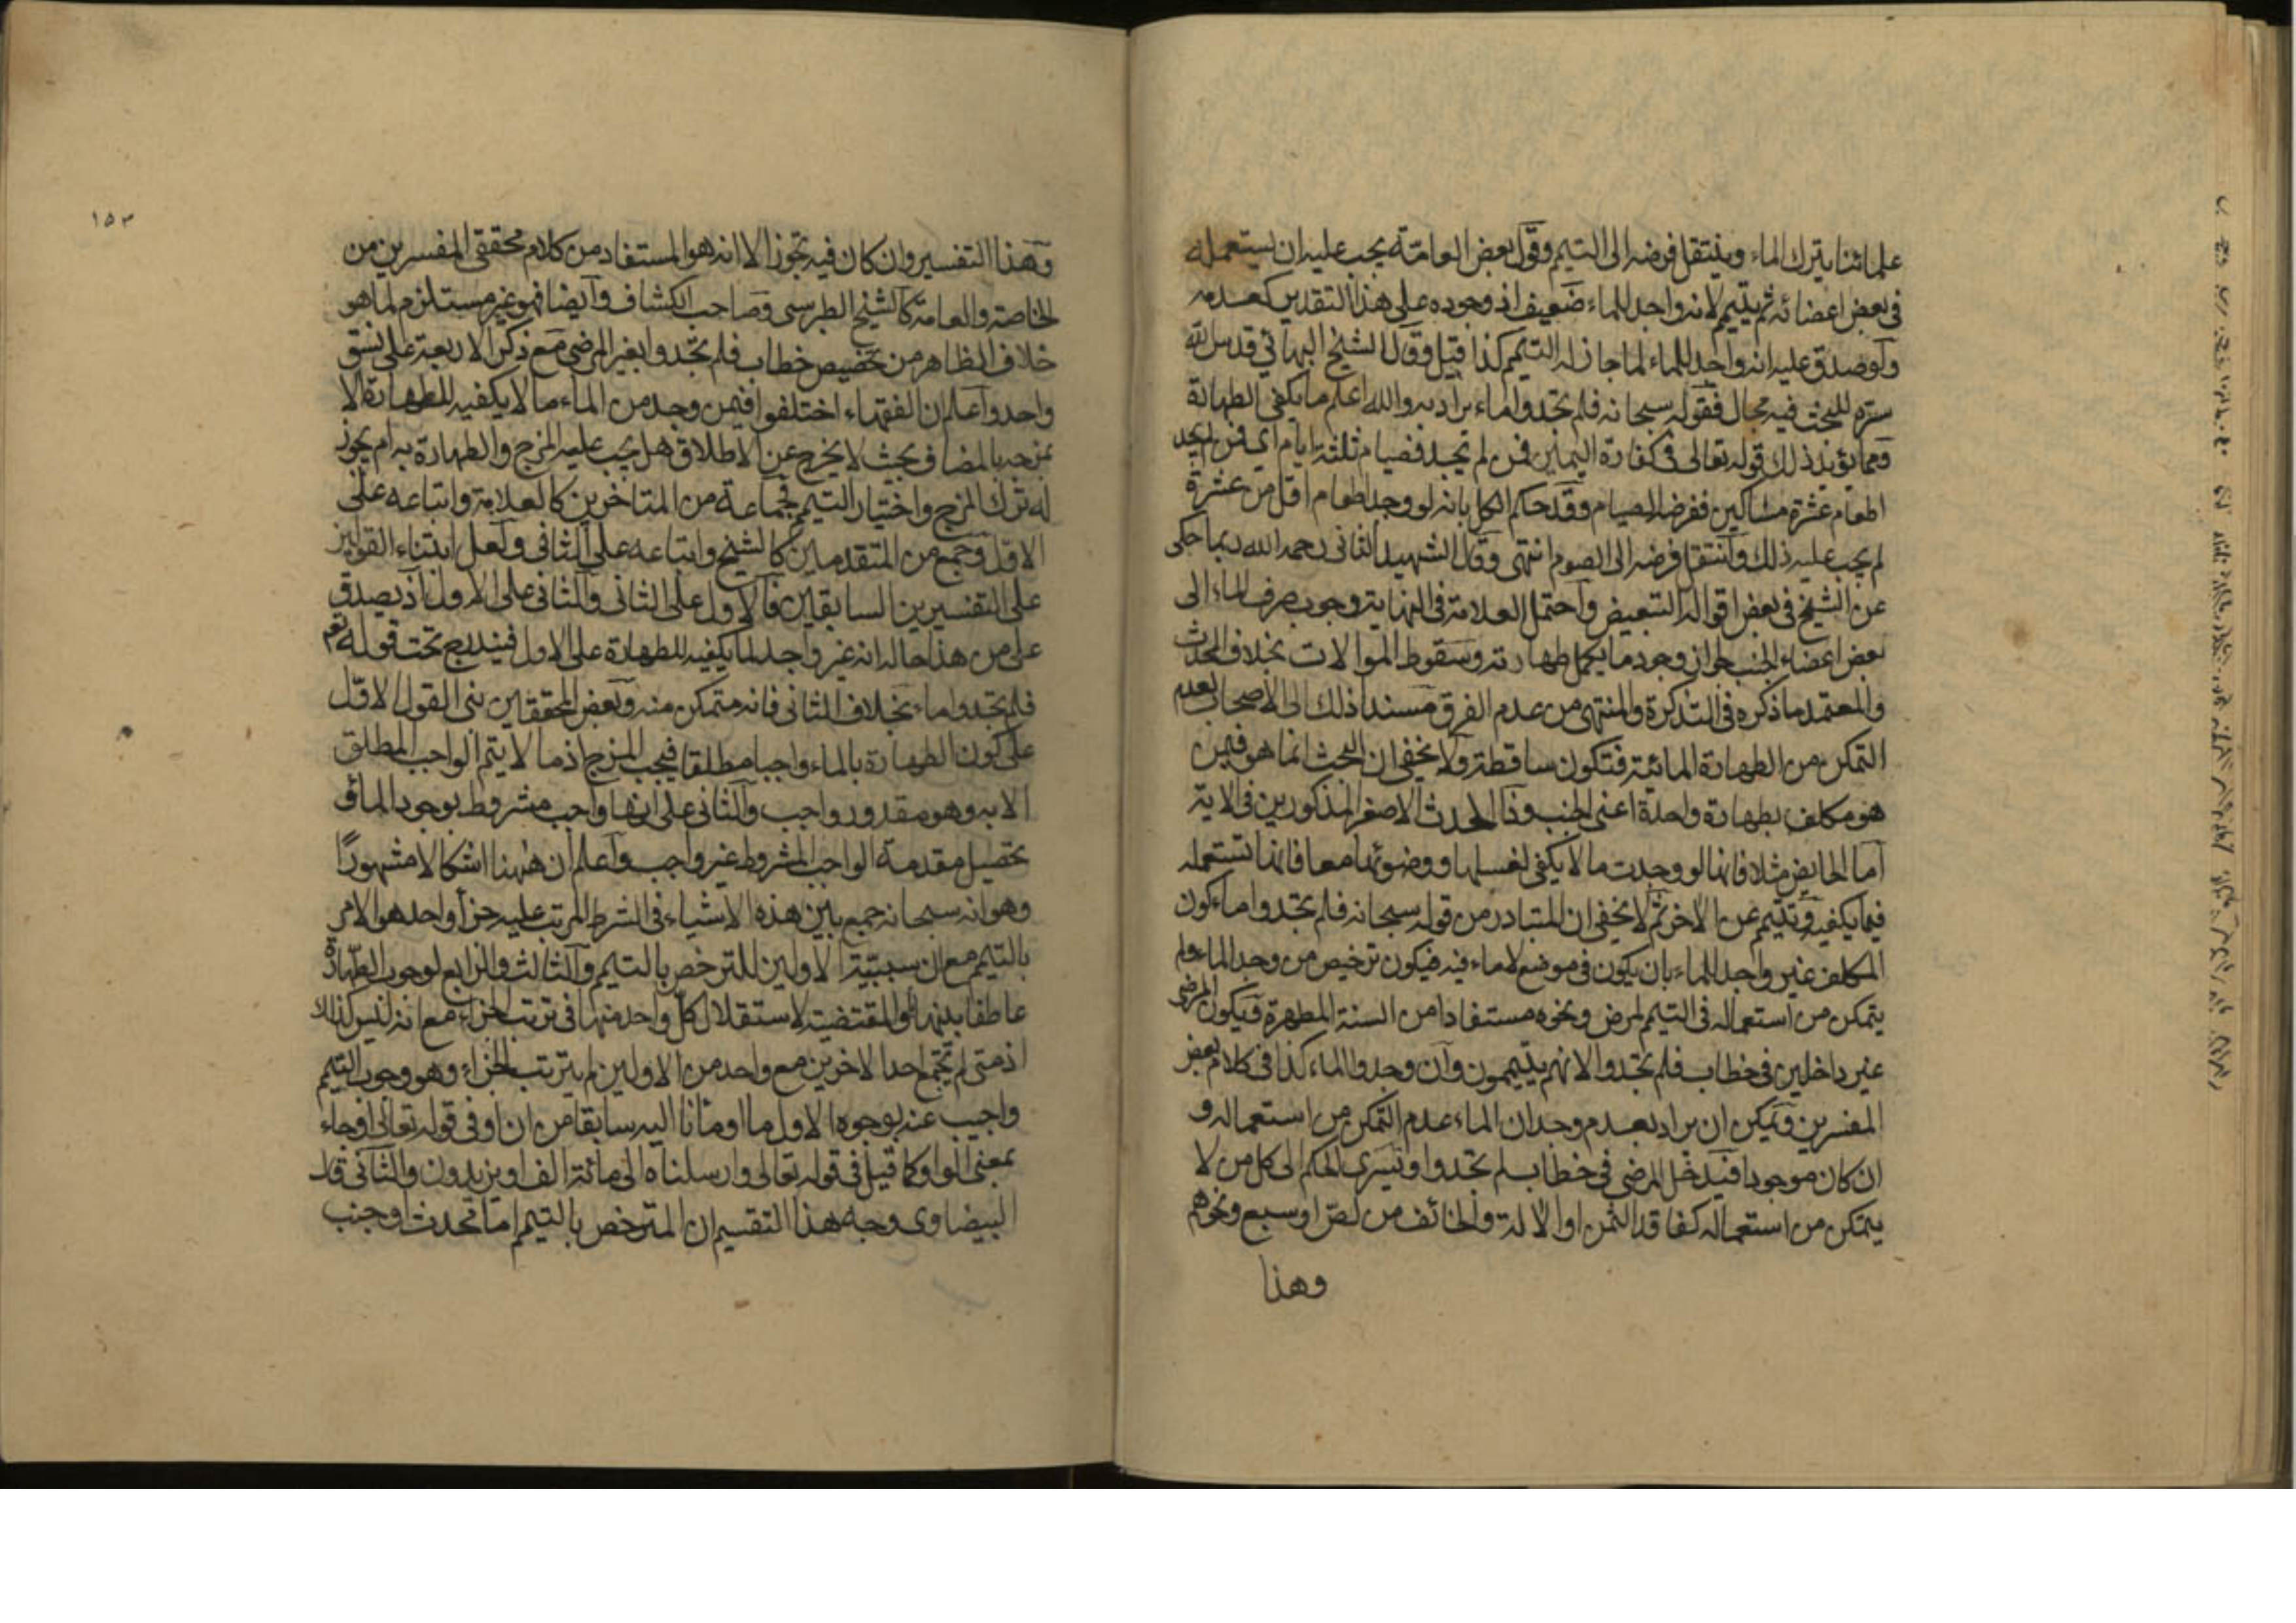 علمائنا يترك الماء وينتقل فرضه الى التيمم وقول بعض العامة يجب عليه ان يستعمله
في بعض اعضائه ثم يتيمم لانه واجد للماء ضعيف اذ وجوده على هذا التقدير كعدمه
ولو صدق عليه انه واجد للماء لما جاز له التيمم كذا قيل وقال الشيخ البهائي قدس الله
سره للبحث فيه مجال فقوله سبحانه فلم تجدوا ماء يراد به والله اعلم ما يكفى الطهارة
ومما يؤيد ذلك قوله تعالى في كفارة اليمين فمن لم تجد فصيام ثلثة ايام اي فمن لم يجد
اطعام عشرة مساكين ففرضه الصيام وقد حكم الكل بانه لو وجد اطعام اقل من عشرة
لم يجب عليه ذلك وانتقل فرضه الى الصوم انتهى وقال الشهيد الثاني رحمه الله ربما حكى
عن الشيخ في بعض اقواله التبعيض واحتمل العلامة في النهاية وجوب صرف الماء الى
بعض اعضاء الجنب لجواز وجود ما يكمل طهارته وسقوط الموالات بخلاف المحدث
والمعتمد ما ذكره في التذكرة والمنتهى من عدم الفرق مسندا ذلك الى الاصحاب لعدم
التمكن من الطهارة المائية فتكون ساقطة ولا يخفى ان البحث انما هو فيمن
هو مكلف بطهارة واحدة اعنى الجنب وذا الحدث الاصغر المذكورين في الاية
اما الحايض مثلا فانها لو وجدت ما لا يكفى لغسلها ووضوئها معا فانها تستعمله
فيما يكفيه وتتيمم عن الاخر ثم لا يخفى ان المتبادر من قوله سبحانه فلم تجدوا ماء كون
المكلف غير واجد للماء بان يكون في موضع لا ماء فيه فيكون ترخيص من وجد الماء ولم
يتمكن من استعماله في التيمم لمرض ونحوه مستفادا من السنة المطهرة فيكون المرضى
غير داخلين في خطاب فلم تجدوا لانهم يتيممون وان وجدوا الماء كذا في كلام بعض
المفسرين ويمكن ان يراد بعدم وجدان الماء عدم التمكن من استعماله و
ان كان موجودا فيدخل المرضى في خطاب لم تجدوا ويسرى الحكم الى كل من لا
يتمكن من استعماله كفاقد الثمن او الالة والخائف من لص او سبع ونحوهم
وهذا
١٥٣
وهذا التفسير وان كان فيه تجوز الا انه هو المستفاد من كلام محققى المفسرين من
الخاصة والعامة كالشيخ الطبرسى وصاحب الكشاف وايضا فهو غير مستلزم لما هو
خلاف الظاهر من تخصيص خطاب فلم تجدوا بغير المرضى مع ذكر الاربعة على نسق
واحد واعلم ان الفقهاء اختلفوا فيمن وجد من الماء ما لا يكفيه للطهارة الا
بمزجه بالمضاف بحيث لا يخرج عن الاطلاق هل يجب عليه المزج والطهارة به ام يجوز
له ترك المزج واختيار التيمم فجماعة من المتاخرين كالعلامة واتباعه على
الاول وجمع من المتقدمين كالشيخ واتباعه على الثاني ولعل ابتناء القولين
على التفسيرين السابقين فالاول على الثاني والثاني على الاول اذ يصدق
على من هذا حاله انه غير واجد لما يكفيه للطهارة على الاول فيندرج تحت قوله تعم
فلم تجدوا ماء بخلاف الثاني فانه متمكن منه وبعض المحققين بنى القول الاول
على كون الطهارة بالماء واجبا مطلقا فيجب المزج اذ ما لا يتم الواجب المطلق
الا به وهو مقدور واجب والثاني على انها واجب مشروط بوجود الماء و
تحصيل مقدمة الواجب المشروط غير واجب واعلم ان ههنا اشكالا مشهورا
وهو انه سبحانه جمع بين هذه الاشياء في الشرط المرتب عليه جزاء واحد هو الامر
بالتيمم مع ان سببية الاولين للترخص بالتيمم والثالث والرابع لوجوب الطهارة
عاطفا بينها باو المقتضية لاستقلال كل واحد منها في ترتب الجزاء مع انه ليس كذلك
اذ متى لم يجتمع احد الاخرين مع واحد من الاولين لم يترتب الجزاء وهو وجوب التيمم
واجيب عنه بوجوه الاول ما اومأنا اليه سابقا من ان او في قوله تعالى او جاء
بمعنى الواو كما قيل في قوله تعالى وارسلناه الى مائة الف او يزيدون والثاني قال
البيضاوى وجه هذا التقسيم ان المترخص بالتيمم اما محدث او جنب